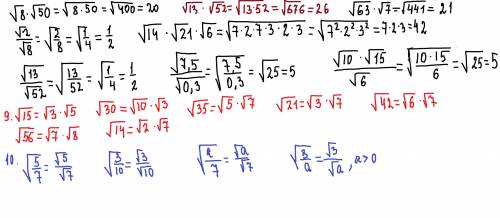 √8·√50=√8·50=√400=20 √13·√52=√13·52=√676=26 √63·√7=√441=21
√2/√8=√2/8=√1/4=1/2 √14·√21·√6=√7·2·7·3·2·3=√7²·2²·3²=7·2·3=42
√13/√52=√13/52=√1/4=1/2 √7,5/√0,3=√7,5/0,3=√25=5 √10·√15/√6=√10·15/6=√25=5
9. √15=√3·√5 √30=√10·√3 √35=√5·√7 √21=√3·√7 √42=√6·√7
√56=√7·√8 √14=√2·√7
10. √5/7=√5/√7 √3/10=√3/√10 √a/7=√a/√7 √3/a=√3/√a, a>0